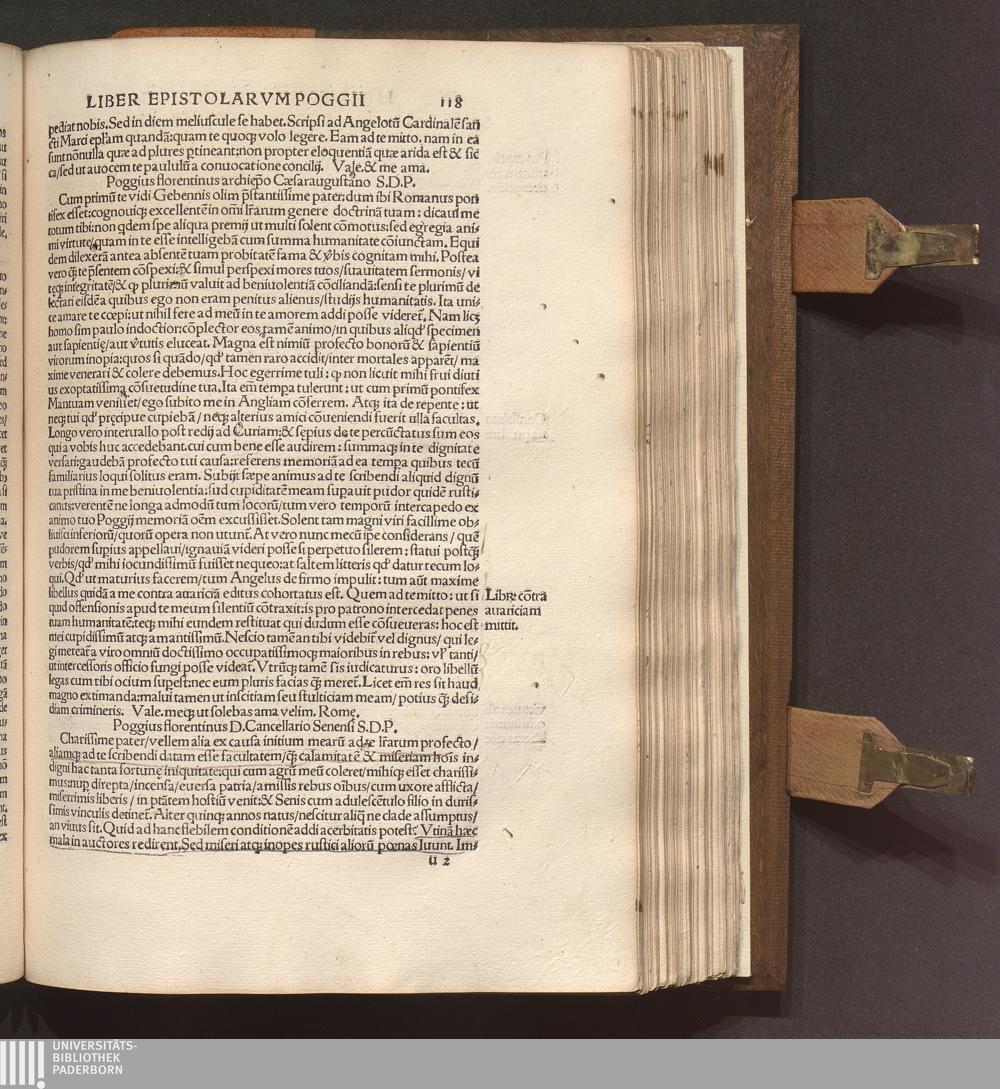 LIBER EPISTOLARVM POGGII 118
pediat nobis. Sed in diem meliuscule se habet. Scripsi ad Angelotū Cardinalē san
cti Marci epl̄am quandā: quam te quoqꝫ volo legere. Eam ad te mitto. nam in ea
sunt nōnulla quæ ad plures ꝑtineant: non propter eloquentiā quæ arida est & sic
ca/sed ut auocem te paululū a conuocatione concilij. Vale. & me ama.
Poggius florentinus archiep̄o Cæsaraugustano S.D.P.
Cum primū te vidi Gebennis olim p̄stantissime pater: dum ibi Romanus pon
tifex esset: cognouiqꝫ excellentē in om̄i lr̄arum genere doctrinā tuam: dicaui me
totum tibi: non qdem spe aliqua premij ut multi solent cōmotus: sed egregia ani⸗
mi virtute/quam in te esse intelligebā cum summa humanitate cōiunctam. Equi
dem dilexerā antea absentē tuam probitatē fama & v̄bis cognitam mihi. Postea
vero qꝫ te p̄sentem cōspexi: & simul perspexi mores tuos/suauitatem sermonis/vi
teqꝫ integritatē/& ꝙ plurimū valuit ad beniuolentiā cōciliandā: sensi te plurimū de
lectari eisdē a quibus ego non eram penitus alienus/studijs humanitatis. Ita uni⸗
ce amare te cœpi: ut nihil fere ad meū in te amorem addi posse videret̄. Nam licꝫ
homo sim paulo indoctior: cōplector eos tamē animo/in quibus aliqd' specimen
aut sapientię/aut v̄tutis eluceat. Magna est nimiū profecto bonorū & sapientiū
virorum inopia: quos si quādo/qd' tamen raro accidit/inter mortales apparēt/ma
xime venerari & colere debemus. Hoc egerrime tuli: ꝙ non licuit mihi frui diuti
us exoptatissima cōsuetudine tua. Ita em̄ tempa tulerunt: ut cum primū pontifex
Mantuam venisset/ego subito me in Angliam cōferrem. Atqꝫ ita de repente: ut
neqꝫ tui qd' pręcipue cupiebā/neqꝫ alterius amici cōueniendi fuerit ulla facultas.
Longo vero interuallo post redij ad Curiam: & sepius de te percūctatus sum eos
qui a vobis huc accedebant. cui cum bene esse audirem: summaqꝫ in te dignitate
versari: gaudebā profecto tui causa: referens memoriā ad ea tempa quibus tecū
familiarius loqui solitus eram. Subijt sæpe animus ad te scribendi aliquid dignū
tua pristina in me beniuolentia: sud cupiditatē meam supauit pudor quidē rusti⸗
canus: verentē ne longa admodū tum locorū/tum vero temporū intercapedo ex
animo tuo Poggij memoriā oēm excussisset. Solent tam magni viri facillime ob⸗
liuisci inferiorū/quorū opera non utunt̄. At vero nunc mecū ip̄e considerans/quē
pudorem supius appellaui/ignauiā videri posse si perpetuo silerem: statui postqꝫ
verbis/qd' mihi iocundissimū fuisset nequeo: at saltem litteris qd' datur tecum lo⸗
qui. Qd' ut maturius facerem/tum Angelus de firmo impulit: tum aūt maxime
libellus quidā a me contra auariciā editus cohortatus est. Quem ad te mitto: ut si
quid offensionis apud te meum silentiū cōtraxit: is pro patrono intercedat penes
tuam humanitatē: teqꝫ mihi eundem restituat qui dudum esse cōsueueras: hoc est
mei cupidissimū atqꝫ amantissimū. Nescio tamē an tibi videbit̄ vel dignus/qui le⸗
gi mereat̄ a viro omniū doctissimo occupatissimoqꝫ maioribus in rebus: vl' tanti/
ut intercessoris officio fungi posse videat̄. Vtrūqꝫ tamē sis iudicaturus: oro libellū
legas cum tibi ocium supest: nec eum pluris facias qꝫ meret̄. Licet em̄ res sit haud
magno extimanda: malui tamen ut inscitiam seu stulticiam meam/potius qꝫ desi⸗
diam crimineris. Vale. meqꝫ ut solebas ama velim. Romę.
Librꝫ cōtra
auariciam
mittit.
Poggius florentinus D. Cancellario Senensi S.D.P.
Charissime pater/vellem alia ex causa initium mearū ad te lr̄arum profecto/
aliamqꝫ ad te scribendi datam esse facultatem/qꝫ calamitatē & miseriam hoīs in⸗
digni hac tanta fortunę iniquitate: qui cum agrū meū coleret/mihiqꝫ esset charissi⸗
mus: nuꝑ direpta/incensa/euersa patria/amissis rebus oībus/cum uxore afflicta/
miserrimis liberis/in ptātem hostiū venit: & Senis cum adulescētulo filio in duris⸗
simis vinculis detinet̄. Alter quinqꝫ annos natus/nescitur aliq ne clade assumptus/
an viuus sit. Quid ad hanc flebilem conditionē addi acerbitatis potest? Vtinā hæc
mala in auctores redirent. Sed miseri atqꝫ inopes rustici aliorū pœnas luunt. Im⸗
u 2
UNIVERSITÄTS-
BIBLIOTHEK
PADERBORN